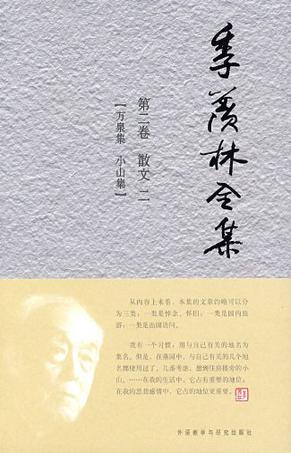 季羡林全集
第二卷 散文二
【万泉集 小山集】
从内容上来看，本集的文章约略可以分
为三类：一类是悼念、怀旧；一类是国内旅
游；一类是出国访问。
我有一个习惯：用与自己有关的地名为
集名。但是，在燕园中，与自己有关的几个地
名都使用过了。几番考虑，想到住房楼旁的小
山。……在我的生活中，它占有重要的地位；
在我的思想感情中，它占的地位更重要。
外语教学与研究出版社